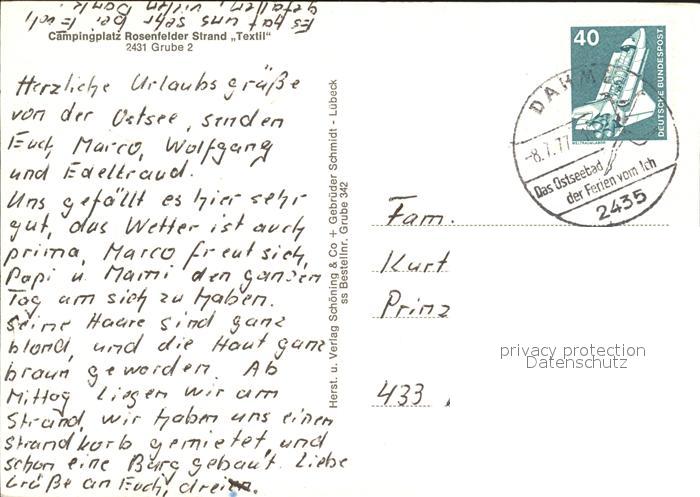 Es hat uns sehr bei Euch
gefallen, vielen Dank.
Campingplatz Rosenfelder Strand „Textil"
2431 Grube 2
Herzliche Urlaubsgrüße
von der Ostsee, senden
Euch, Marco, Wolfgang
und Edeltraud.
Uns gefällt es hier sehr
gut, das Wetter ist auch
prima, Marco freut sich,
Papi u. Mami den ganzen
Tag am sich zu haben.
Seine Haare sind ganz
blond, und die Haut ganz
braun geworden. Ab
Mittag liegen wir am
Strand, wir haben uns einen
Strandkorb gemietet, und
schon eine Burg gebaut. Liebe
Grüße an Euch, drei
Herst. u. Verlag Schöning & Co + Gebrüder Schmidt - Lübeck
ss Bestellnr. Grube 342
40
DEUTSCHE BUNDESPOST
WELTRAUMLABOR
DAHME
-8.7.77
Das Ostseebad
der Ferien vom Ich
2435
Fam.
Kurt
Prinz
privacy protection
Datenschutz
433